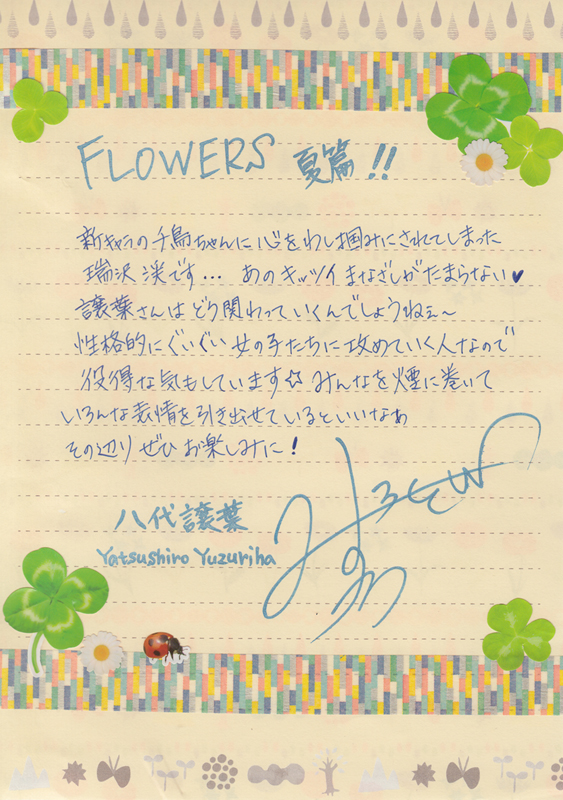 FLOWERS 夏篇!!
新キャラの千鳥ちゃんに心をわし掴みにされてしまった
瑞沢渓です… あのキッツイまなざしがたまらない♥
譲葉さんはどう関わっていくんでしょうねぇ～
性格的にぐいぐい女の子たちに攻めていく人なので
役得な気もしています☆ みんなを煙に巻いて
いろんな表情を引き出せているといいなぁ
その辺りぜひお楽しみに!
八代譲葉
Yatsushiro Yuzuriha